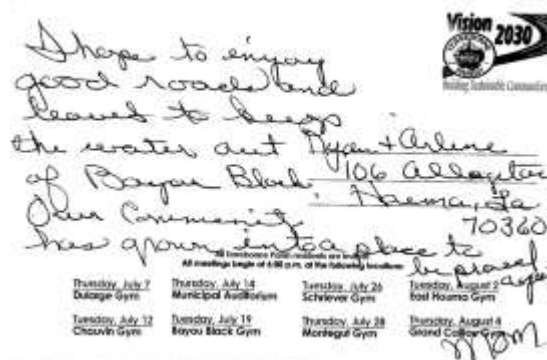 Vision 2030
Building Sustainable Communities
I hope to enjoy
good roads and
leaves to keep
the water out
of Bayou Black
Our Community
has grown into a place to
be proud
106
Houma, La
70360
All Terrebonne Parish residents are invited
All meetings begin at 6:00 p.m. at the following locations:
Thursday, July 7
Dularge Gym
Thursday, July 14
Municipal Auditorium
Tuesday, July 26
Schriever Gym
Tuesday, August 2
East Houma Gym
Tuesday, July 12
Chauvin Gym
Tuesday, July 19
Bayou Black Gym
Thursday, July 28
Montegut Gym
Thursday, August 4
Grand Caillou Gym